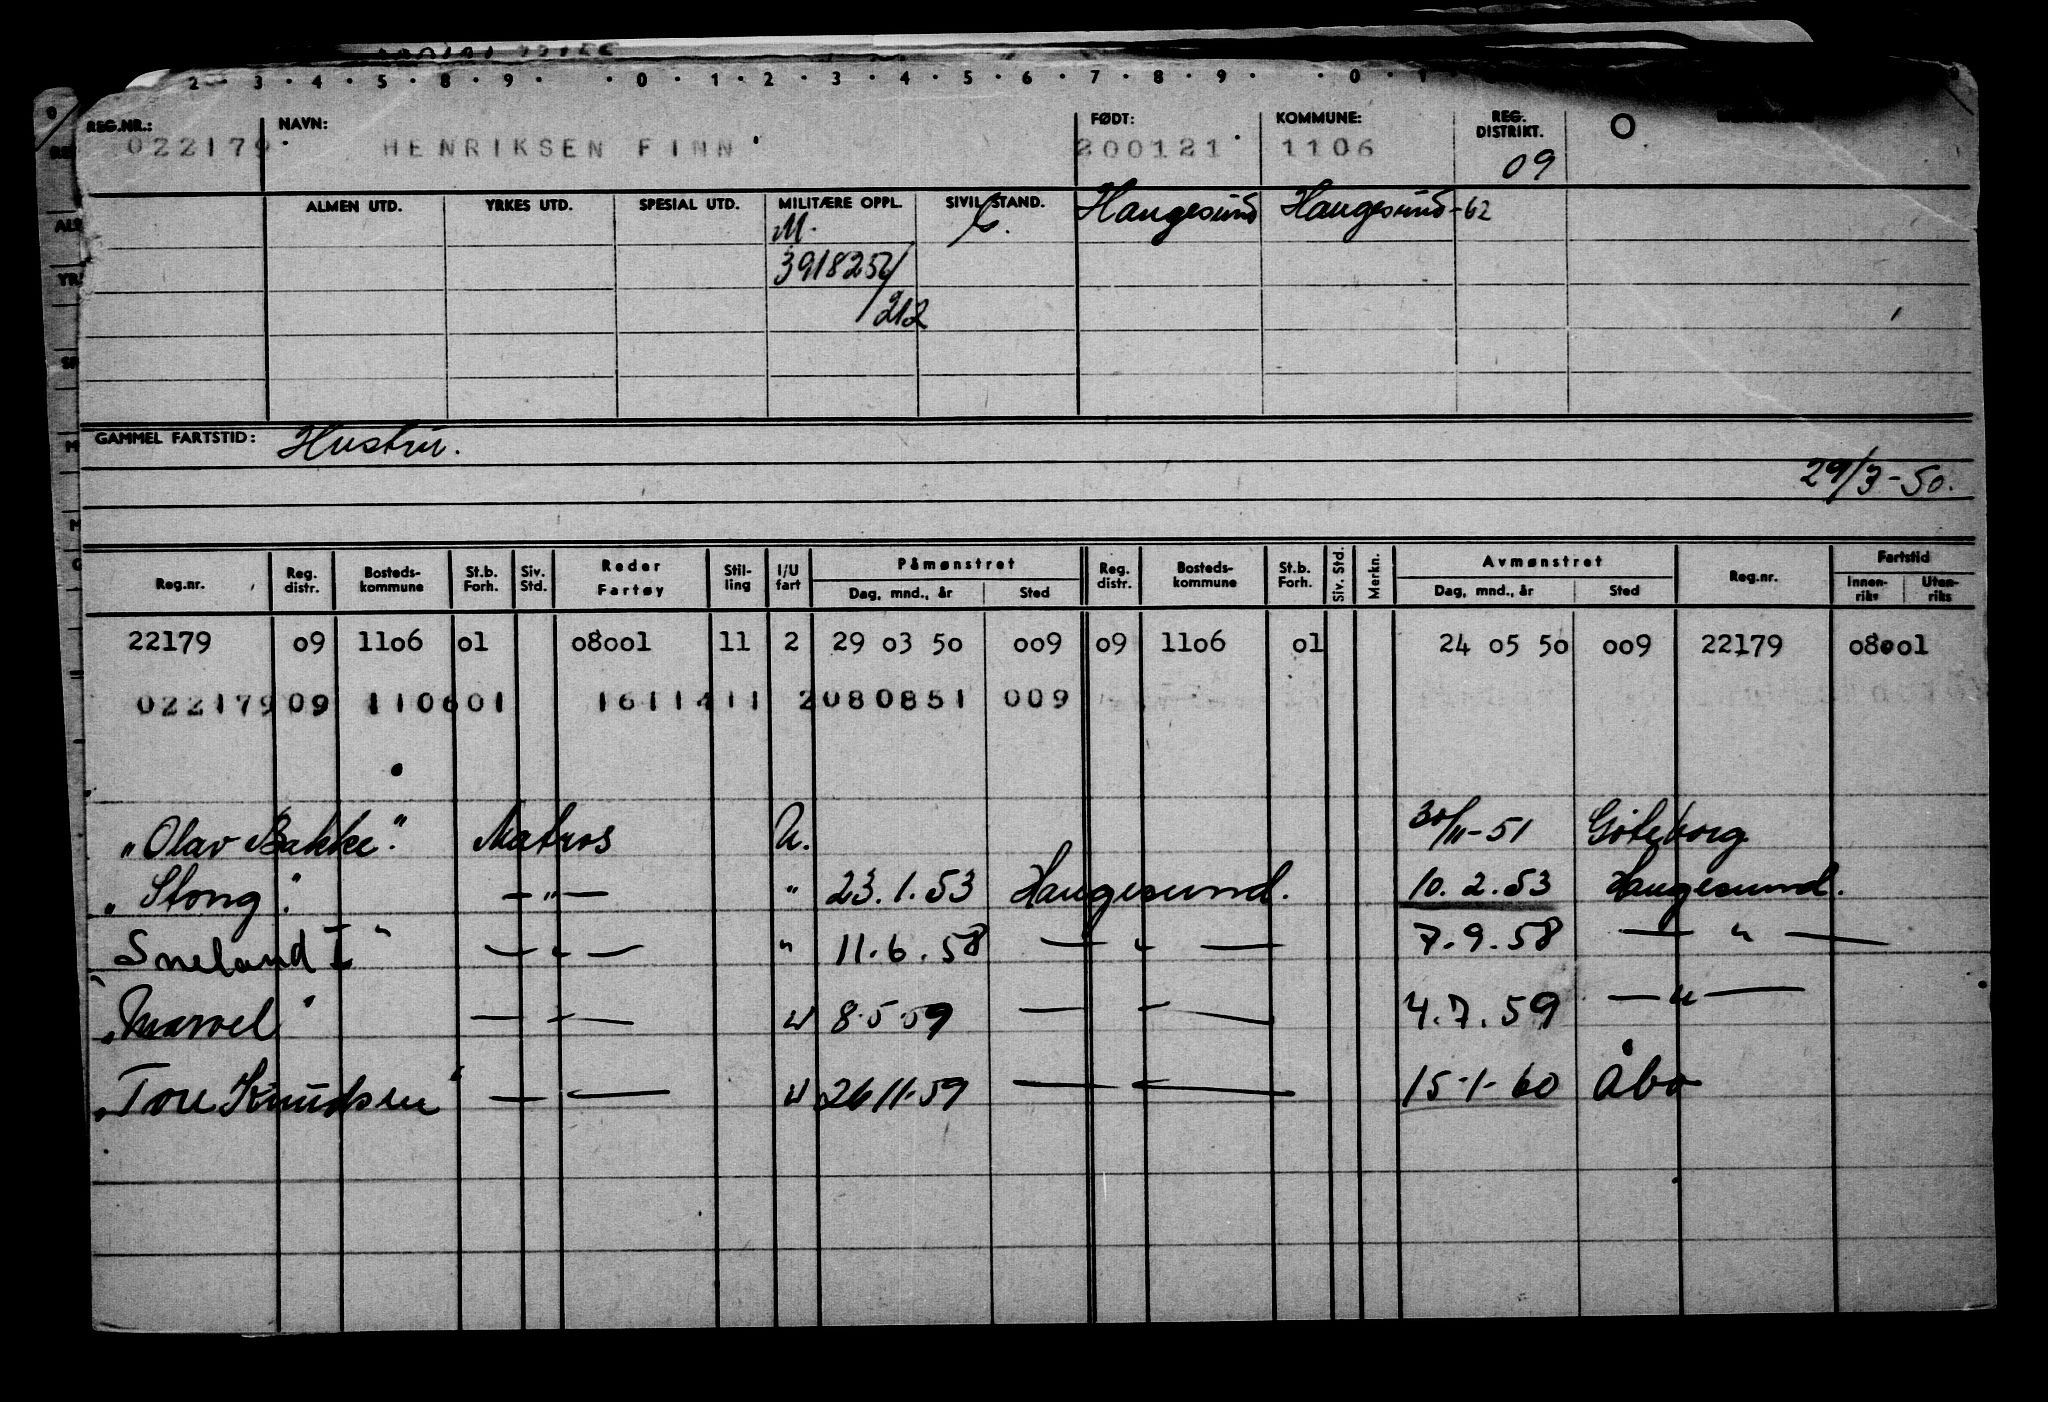 2 · 3 · 4 · 5 · 8 · 9 · · 0 · 1 · 2 · 3 · 4 · 5 · 6 · 7 · 8 · 9 · · 0 · 1
REG.NR.: NAVN: FØDT: KOMMUNE: REG. DISTRIKT.
022179 HENRIKSEN FINN 200121 1106 09
ALMEN UTD. YRKES UTD. SPESIAL UTD. MILITÆRE OPPL. SIVIL STAND. Haugesund Haugesund-62
M. G.
391825
212
GAMMEL FARTSTID: Hustru.
29/3-50.
Reg.nr. Reg. distr. Bosteds-kommune St.b. Forh. Siv. Std. Reder Fartøy Stil-ling I/U fart Påmønstret Dag, mnd., år Sted Reg. distr. Bosteds-kommune St.b. Forh. Siv. Std. Merkn. Avmønstret Dag, mnd., år Sted Reg.nr. Fartstid Innen-riks Uten-riks
22179 09 1106 01 08001 11 2 29 03 50 009 09 1106 01 24 05 50 009 22179 08001
022179 09 110601 1611411 2080851 009
"Olav Bakke". Matros U. 30/11-51 Göteborg
"Stong". —"— " 23.1.53 Haugesund. 10.2.53 Haugesund.
"Sneland I" —"— " 11.6.58 —"— 7.9.58 —"—
"Marvel" —"— U 8.5.59 —"— 4.7.59 —"—
"Tore Knudsen" —"— U 26.11.59 —"— 15.1.60 Åbo